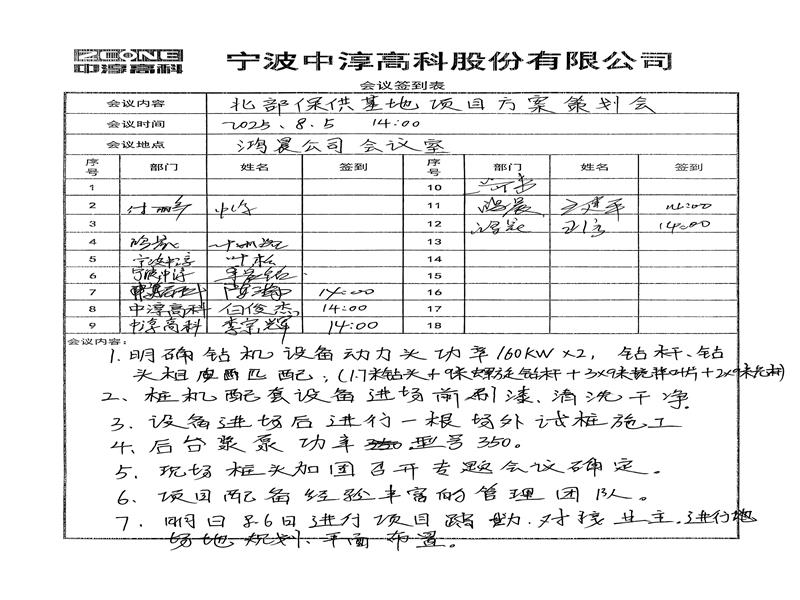 ZCONE
中淳高科
宁波中淳高科股份有限公司
会议签到表
会议内容 北部保供基地项目方案策划会
会议时间 2025.8.5 14:00
会议地点 鸿晨公司会议室
序号 部门 姓名 签到 序号 部门 姓名 签到
1 10
2 11 鸿晨 王建平 14:00
3 12 鸿晨 14:00
4 鸿晨 13
5 宁波中淳 叶松 14
6 宁波中淳 15
7 14:00 16
8 中淳高科 白俊杰 14:00 17
9 中淳高科 李宗辉 14:00 18
会议内容：
1.明确钻机设备动力头功率160KW×2，钻杆、钻
头相应匹配，(1.7米钻头+9米螺旋钻杆+3×9米搅拌叶片+2×9米光杆)
2、桩机配套设备进场前刷漆、清洗干净。
3、设备进场后进行一根场外试桩施工
4、后台浆泵功率350型号350。
5、现场桩头加固召开专题会议确定。
6、项目配备经验丰富的管理团队。
7、明日8.6日进行项目踏勘.对接业主.进行
场地规划、平面布置。